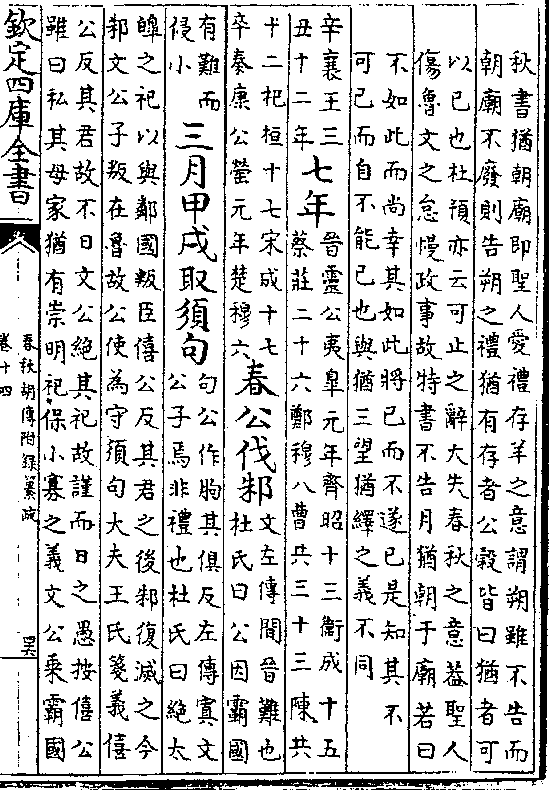 秋書猶朝廟即聖人愛禮存羊之意謂朔雖不告而
朝廟不廢則告朔之禮猶有存者公穀皆曰猶者可
以已也杜預亦云可止之辭大失春秋之意葢聖人
傷魯文之怠慢政事故特書不告月猶朝于廟若曰
不如此而尚幸其如此將已而不遂已是知其不
可已而自不能已也與猶三望猶繹之義不同
辛襄王三
丑十二年
七年
晉靈公夷皐元年齊昭十三衞成十五
蔡莊二十六鄭穆八曹共三十三陳共
十二杞桓十七宋成十七
卒秦康公罃元年楚穆六
春公伐邾
文左傳間晉難也
杜氏曰公因霸國
有難而
侵小
三月甲戌取須句
句公作朐其俱反左傳寘文
公子焉非禮也杜氏曰絶太
皥之祀以與鄰國叛臣僖公反其君之後邾復滅之今
邾文公子叛在魯故公使為守須句大夫王氏箋義僖
公反其君故不日文公絶其祀故謹而日之愚按僖公
雖曰私其母家猶有崇明祀保小寡之義文公乘霸國
欽定四庫全書
春秋胡傳附録纂疏
卷十四